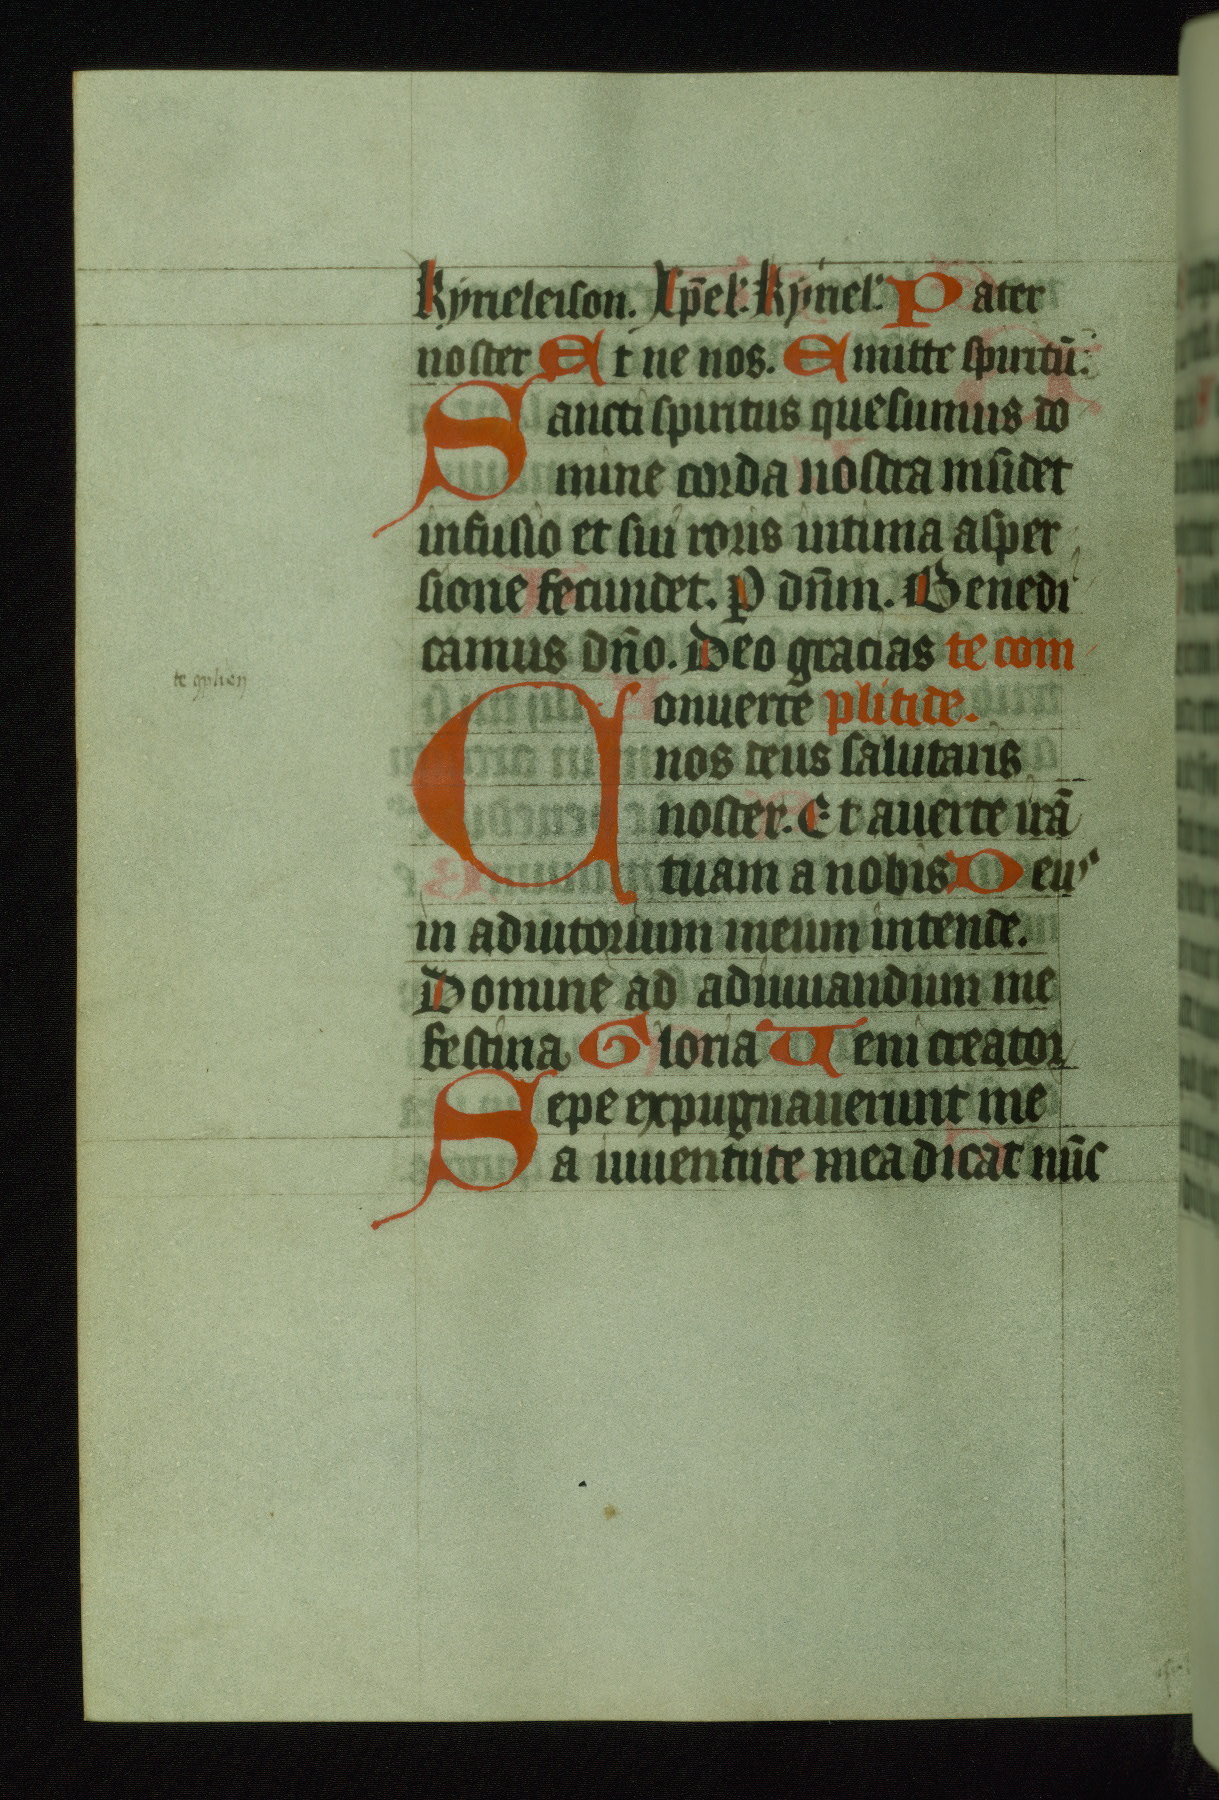 kyrieleison. Xp̄el'. kyriel'. Pater
noster Et ne nos. Emitte spiritū.
Sancti spiritus quesumus do
mine corda nostra mūdet
infusio et sui roris intima asper
sione fecundet. P dn̄m. Benedi
camus dn̄o. Deo gracias te com
Conuerte plitide.
nos deus salutaris
noster. Et auerte irā
tuam a nobis Deus
in adiutorium meum intende.
Domine ad adiuuandum me
festina Gloria Ueni creator
Sepe expugnauerunt me
a iuuentute mea dicat nūc